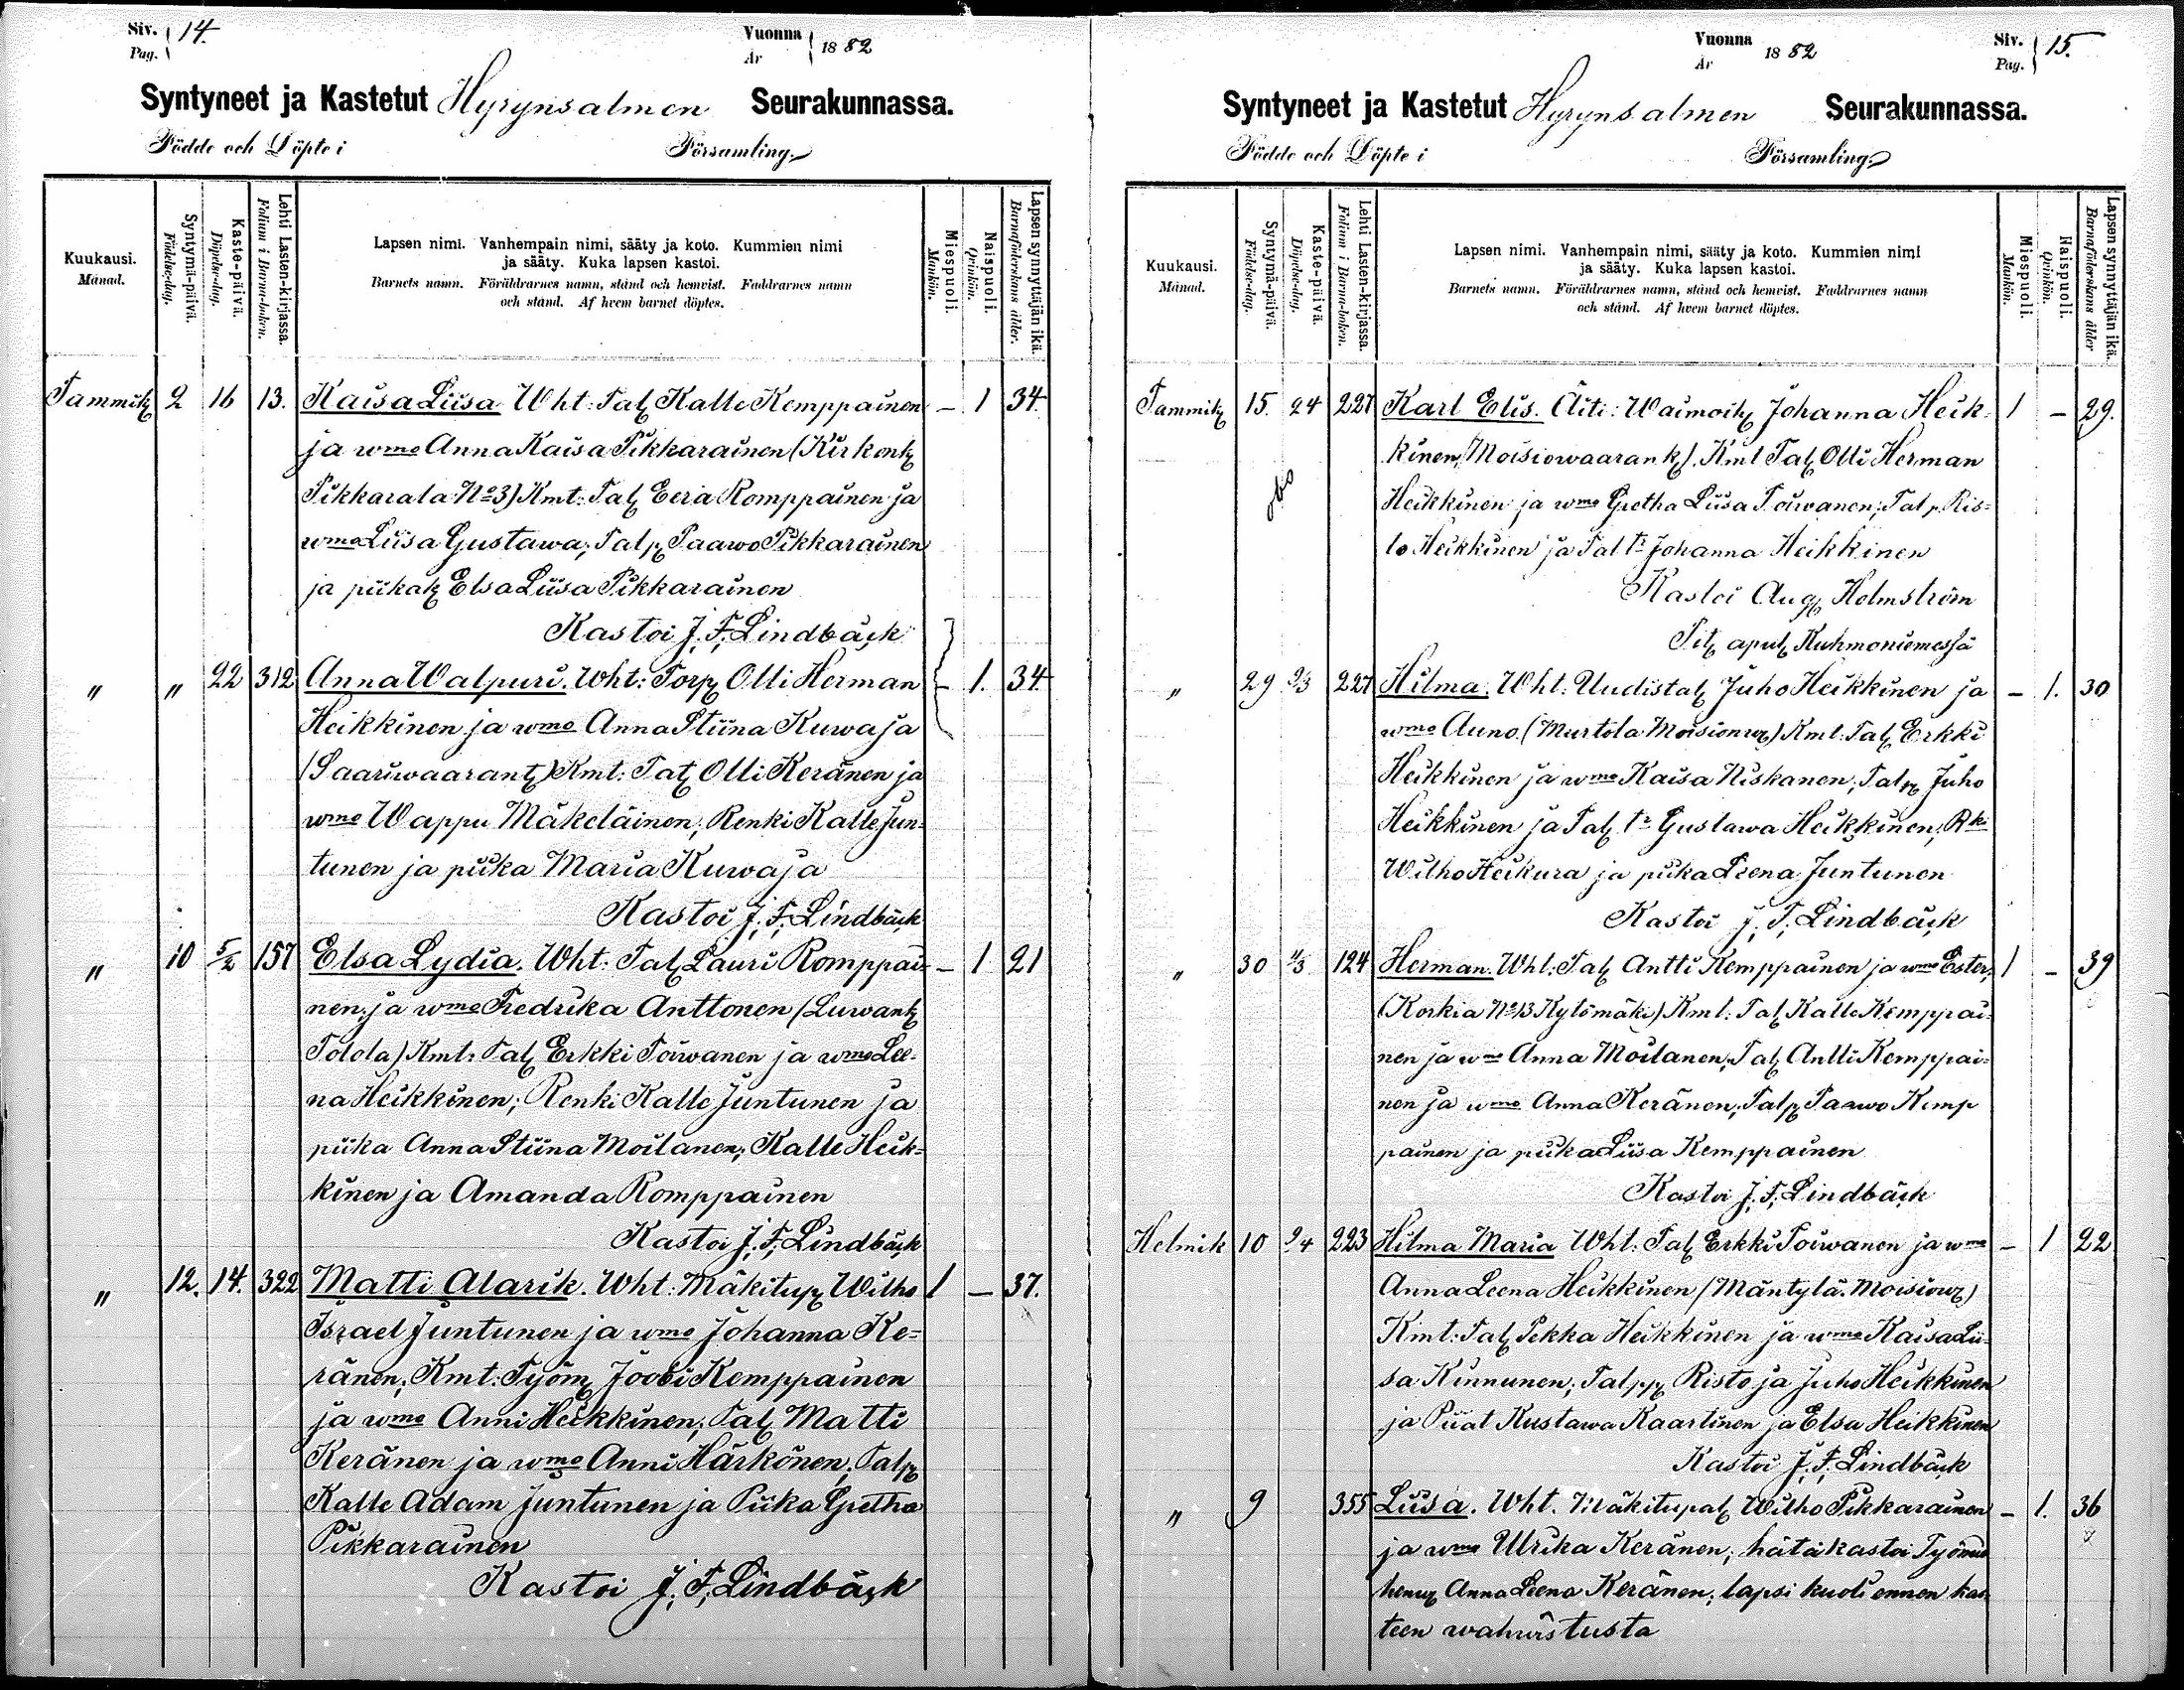 Siv. 14.
Pag.
Vuonna 1882
År
Syntyneet ja Kastetut Hyrynsalmen Seurakunnassa.
Födde och Döpte i Församling.
Kuukausi.
Månad.
Syntymä-päivä.
Födelse-dag.
Kaste-päivä.
Döpelse-dag.
Lehti Lasten-kirjassa.
Folium i Barna-boken.
Lapsen nimi. Vanhempain nimi, sääty ja koto. Kummien nimi
ja sääty. Kuka lapsen kastoi.
Barnets namn. Föräldrarnes namn, stånd och hemvist. Faddrarnes namn
och stånd. Af hvem barnet döptes.
Miespuoli.
Mankön.
Naispuoli.
Qvinkön.
Lapsen synnyttäjän ikä.
Barnaföderskans ålder.
Tammik 2 16 13. Kaisa Liisa Wht: Tal Kalle Kemppainen – 1 34.
ja wmo Anna Kaisa Pikkarainen (Kirkonk
Pikkarala No 3) Kmt: Tal Eeria Romppainen ja
wmo Liisa Gustawa; Talp Paawo Pikkarainen
ja piikak Elsa Liisa Pikkarainen
Kastoi J. F. Lindbäck
" " 22 312 Anna Walpuri. Wht: Torp Olli Herman – 1. 34.
Heikkinen ja wmo Anna Stiina Kuwaja
(Saariwaarant) Kmt: Tal Olli Keränen ja
wmo Wappu Mäkeläinen; Renki Kalle Jun-
tunen ja piika Maria Kuwaja
Kastoi J. F. Lindbäck
" 10 5/2 157 Elsa Lydia. Wht: Tal Lauri Romppai- – 1 21
nen ja wmo Fredrika Anttonen (Luwank
Tolola) Kmt: Tal Erkki Toiwanen ja wmo Lee-
na Heikkinen; Renki Kalle Juntunen ja
piika Anna Stiina Moilanen; Kalle Heik-
kinen ja Amanda Romppainen
Kastoi J. F. Lindbäck
" 12. 14. 322 Matti Alarik. Wht: Mäkitup Wilho 1 – 37.
Israel Juntunen ja wmo Johanna Ke=
ränen; Kmt: Työm Joobi Kemppainen
ja wmo Anni Heikkinen; Tal Matti
Keränen ja wmo Anni Härkönen; Talp
Kalle Adam Juntunen ja Piika Gretha
Pikkarainen
Kastoi J. F. Lindbäck
Vuonna 1882
År
Siv. 15.
Pag.
Syntyneet ja Kastetut Hyrynsalmen Seurakunnassa.
Födde och Döpte i Församling.
Kuukausi.
Månad.
Syntymä-päivä.
Födelse-dag.
Kaste-päivä.
Döpelse-dag.
Lehti Lasten-kirjassa.
Folium i Barna-boken.
Lapsen nimi. Vanhempain nimi, sääty ja koto. Kummien nimi
ja sääty. Kuka lapsen kastoi.
Barnets namn. Föräldrarnes namn, stånd och hemvist. Faddrarnes namn
och stånd. Af hvem barnet döptes.
Miespuoli.
Mankön.
Naispuoli.
Qvinkön.
Lapsen synnyttäjän ikä.
Barnaföderskans ålder
Tammik 15. 24 227 Karl Elis. Äiti: Waimoih Johanna Heik- 1 – 29.
kinen, (Moisiowaarank). Kmt Tal Olli Herman
Heikkinen ja wmo Gretha Liisa Toiwanen; Talp. Ris=
to Heikkinen ja Tal tr Johanna Heikkinen
Kastoi Aug Holmström
Pit apul Kuhmoniemessä
" 29 2/3 227 Hilma. Wht: Uudistal Juho Heikkinen ja – 1. 30
wmo Auno. (Murtola Moisionw) Kmt: Tal Erkki
Heikkinen ja wmo Kaisa Niskanen; Talp Juho
Heikkinen ja Tal tr Gustawa Heikkinen; Rki
Wilho Heikura ja piika Leena Juntunen
Kastoi J. F. Lindbäck
" 30 124 Herman. Wht: Tal Antti Kemppainen ja wmo Ester; 1 – 39
(Korkia No 13 Kytömäki) Kmt: Tal Kalle Kemppai-
nen ja wmo Anna Moilanen; Tal Antti Kemppai=
nen ja wmo Anna Keränen; Talp Paawo Kemp
painen ja piika Liisa Kemppainen
Kastoi J. F. Lindbäck
Helmik 10 223 Hilma Maria Wht: Tal Erkki Toiwanen ja wmo – 1 22
Anna Leena Heikkinen (Mäntylä. Moisiow)
Kmt: Tal Pekka Heikkinen ja wmo Kaisa Lii-
sa Kinnunen; Talpp Risto ja Juho Heikkinen
ja Piiat Kustawa Kaartinen ja Elsa Heikkinen
Kastoi J. F. Lindbäck
" 9 355 Liisa. Wht. Mäkitupal Wilho Pikkarainen – 1. 36
ja wmo Ulrika Keränen; hätäkastoi Työmie
henw Anna Leena Keränen; lapsi kuoli ennen kas
teen wahwistusta